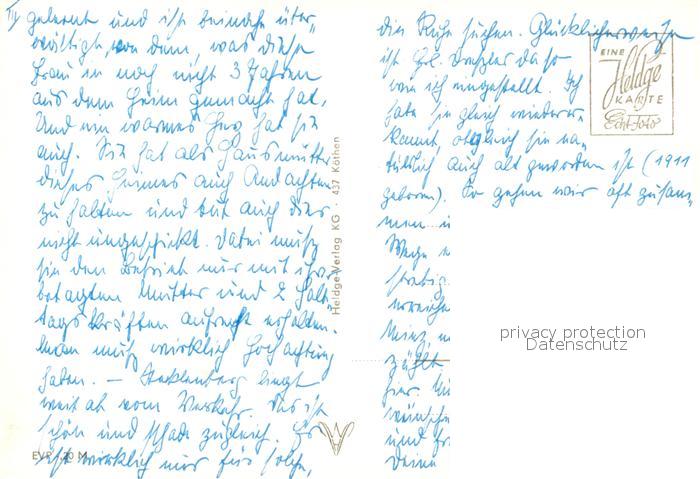 IV gelernt und ist beinahe über-
wältigt, von dem, was diese
Frau in noch nicht 3 Jahren
aus dem Heim gemacht hat.
Und ein warmes Herz hat sie
auch. Sie hat als Hausmutter
dieses Heimes auch Andachten
zu halten und tut auch dies
nicht ungeschickt. Dabei muß
sie den Betrieb nur mit ihrer
betagten Mutter und 2 Halb-
tagskräften aufrecht erhalten.
Man muß wirklich Hochachtung
haben. — Stecklenberg liegt
weit ab vom Verkehr. Das ist
schön und schade zugleich. Es
ist wirklich nur für solche,
EVP -,20 M
Heldge-Verlag KG · 437 Köthen
die Ruhe suchen. Glücklicherweise
ist Frl. da so
wie ich eingestellt. Ich
habe sie gleich wiederer-
kannt, obgleich sie na-
türlich auch alt geworden ist (1911
geboren). So gehen wir oft zusam-
men
Wege
erreiche
zählt
hier.
wünsche
und
Deine
EINE
Heldge
KARTE
Echt Foto
privacy protection
Datenschutz